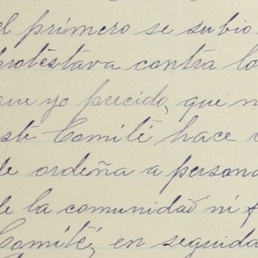 el primero se subio
protestava contra lo
que yo precido, que n
este Comité hace
de ordeña a persona
de la comunidad ni
Comité, en seguida